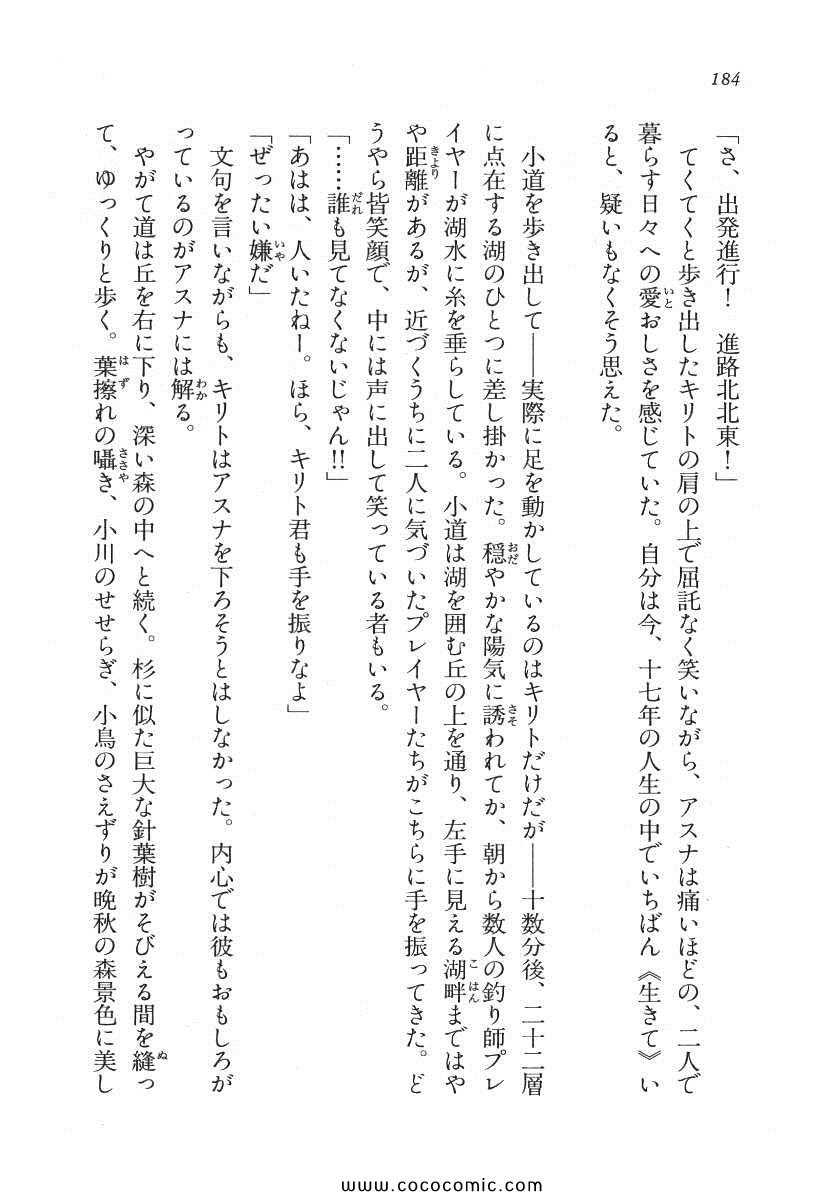 184
「さ、出発進行！　進路北北東！」
てくてくと歩き出したキリトの肩の上で屈託なく笑いながら、アスナは痛いほどの、二人で
暮らす日々への愛おしさを感じていた。自分は今、十七年の人生の中でいちばん《生きて》い
ると、疑いもなくそう思えた。
小道を歩き出して――実際に足を動かしているのはキリトだけだが――十数分後、二十二層
に点在する湖のひとつに差し掛かった。穏やかな陽気に誘われてか、朝から数人の釣り師プレ
イヤーが湖水に糸を垂らしている。小道は湖を囲む丘の上を通り、左手に見える湖畔まではや
や距離があるが、近づくうちに二人に気づいたプレイヤーたちがこちらに手を振ってきた。ど
うやら皆笑顔で、中には声に出して笑っている者もいる。
「……誰も見てなくないじゃん!!」
「あはは、人いたねー。ほら、キリト君も手を振りなよ」
「ぜったい嫌だ」
文句を言いながらも、キリトはアスナを下ろそうとはしなかった。内心では彼もおもしろが
っているのがアスナには解る。
やがて道は丘を右に下り、深い森の中へと続く。杉に似た巨大な針葉樹がそびえる間を縫っ
て、ゆっくりと歩く。葉擦れの囁き、小川のせせらぎ、小鳥のさえずりが晩秋の森景色に美し
www.cococomic.com